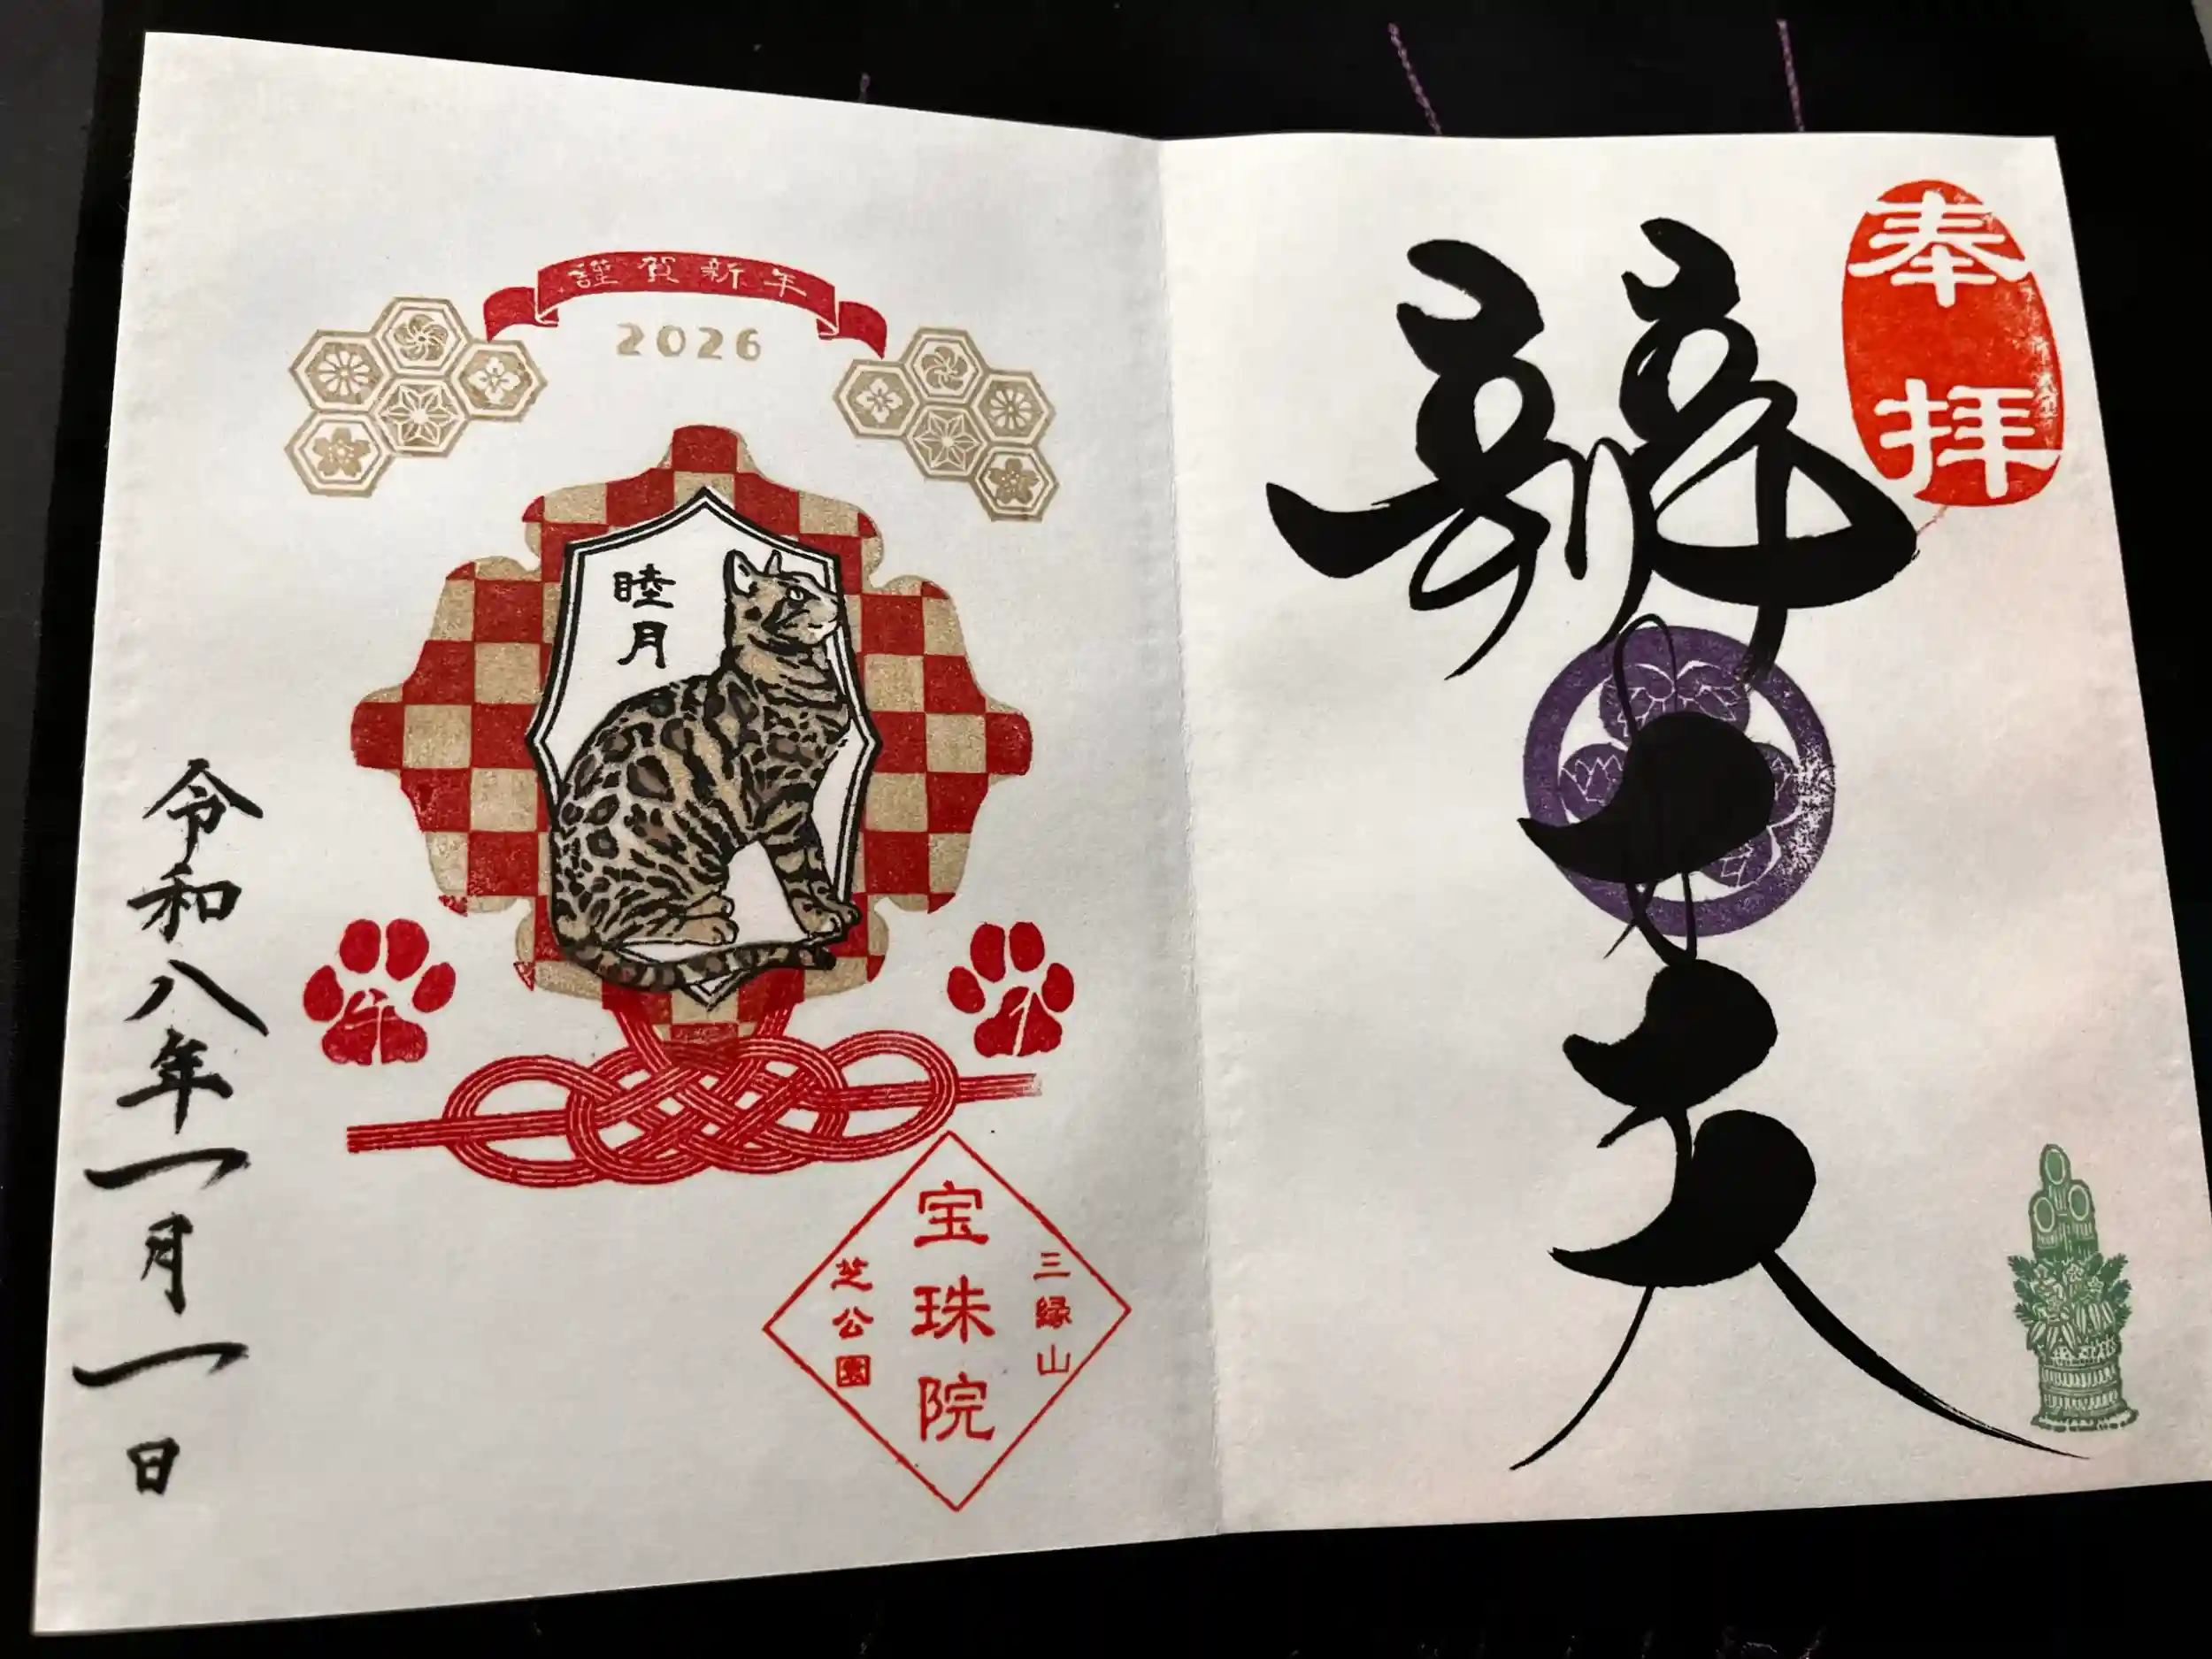 奉拝
辨才天
謹賀新年
2026
睦月
午
三縁山
宝珠院
芝公園
令和八年一月一日